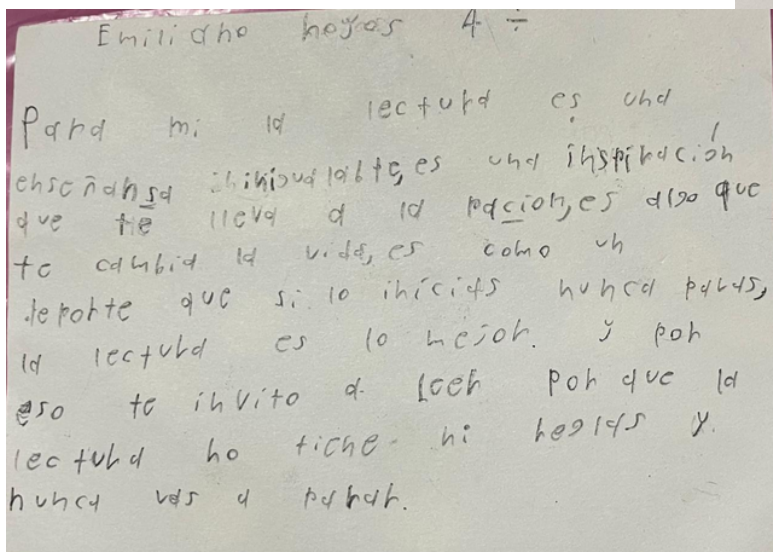 Emiliano hoyos 4 ÷
Para mi la lectura es una
enseñansa inigualable, es una inspiración
que te lleva a la pacion, es algo que
te cambia la vida, es como un
deporte que si lo inicias nunca paras,
la lectura es lo mejor. y por
eso te invito a leer por que la
lectura no tiene ni reglas y.
nunca vas a parar.